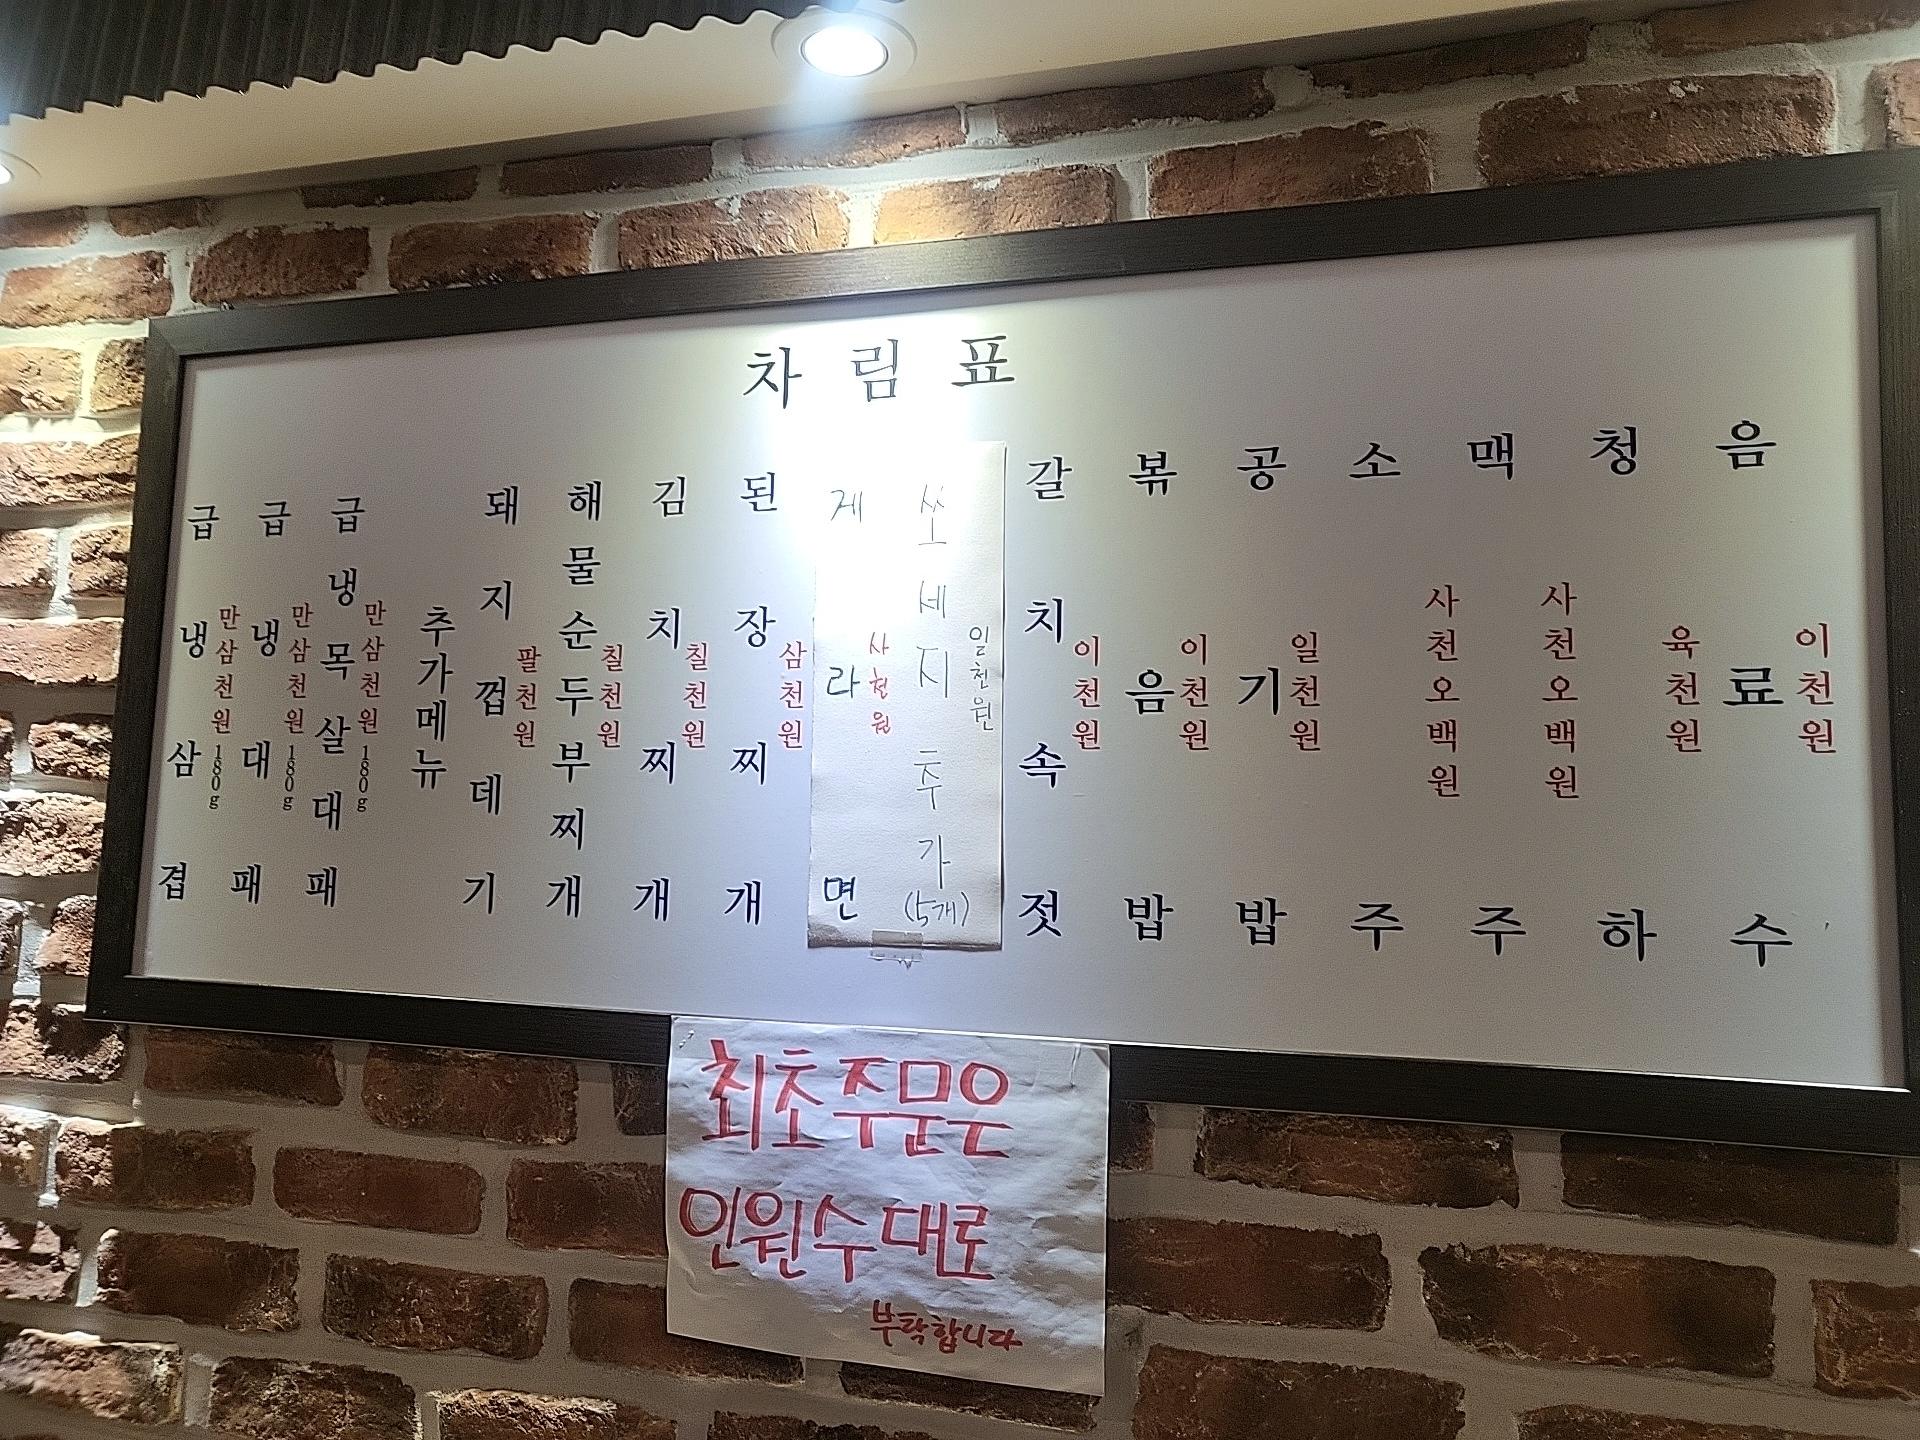 차림표
급냉삼겹
만삼천원 180g
급냉대패
만삼천원 180g
급냉목살대패
만삼천원 180g
추가메뉴
돼지껍데기
팔천원
해물순두부찌개
칠천원
김치찌개
칠천원
된장찌개
삼천원
계라면
사천원
쏘세지추가(5개)
일천원
갈치속젓
이천원
볶음밥
이천원
공기밥
일천원
소주
사천오백원
맥주
사천오백원
청하
육천원
음료수
이천원
최초주문은
인원수대로
부탁합니다